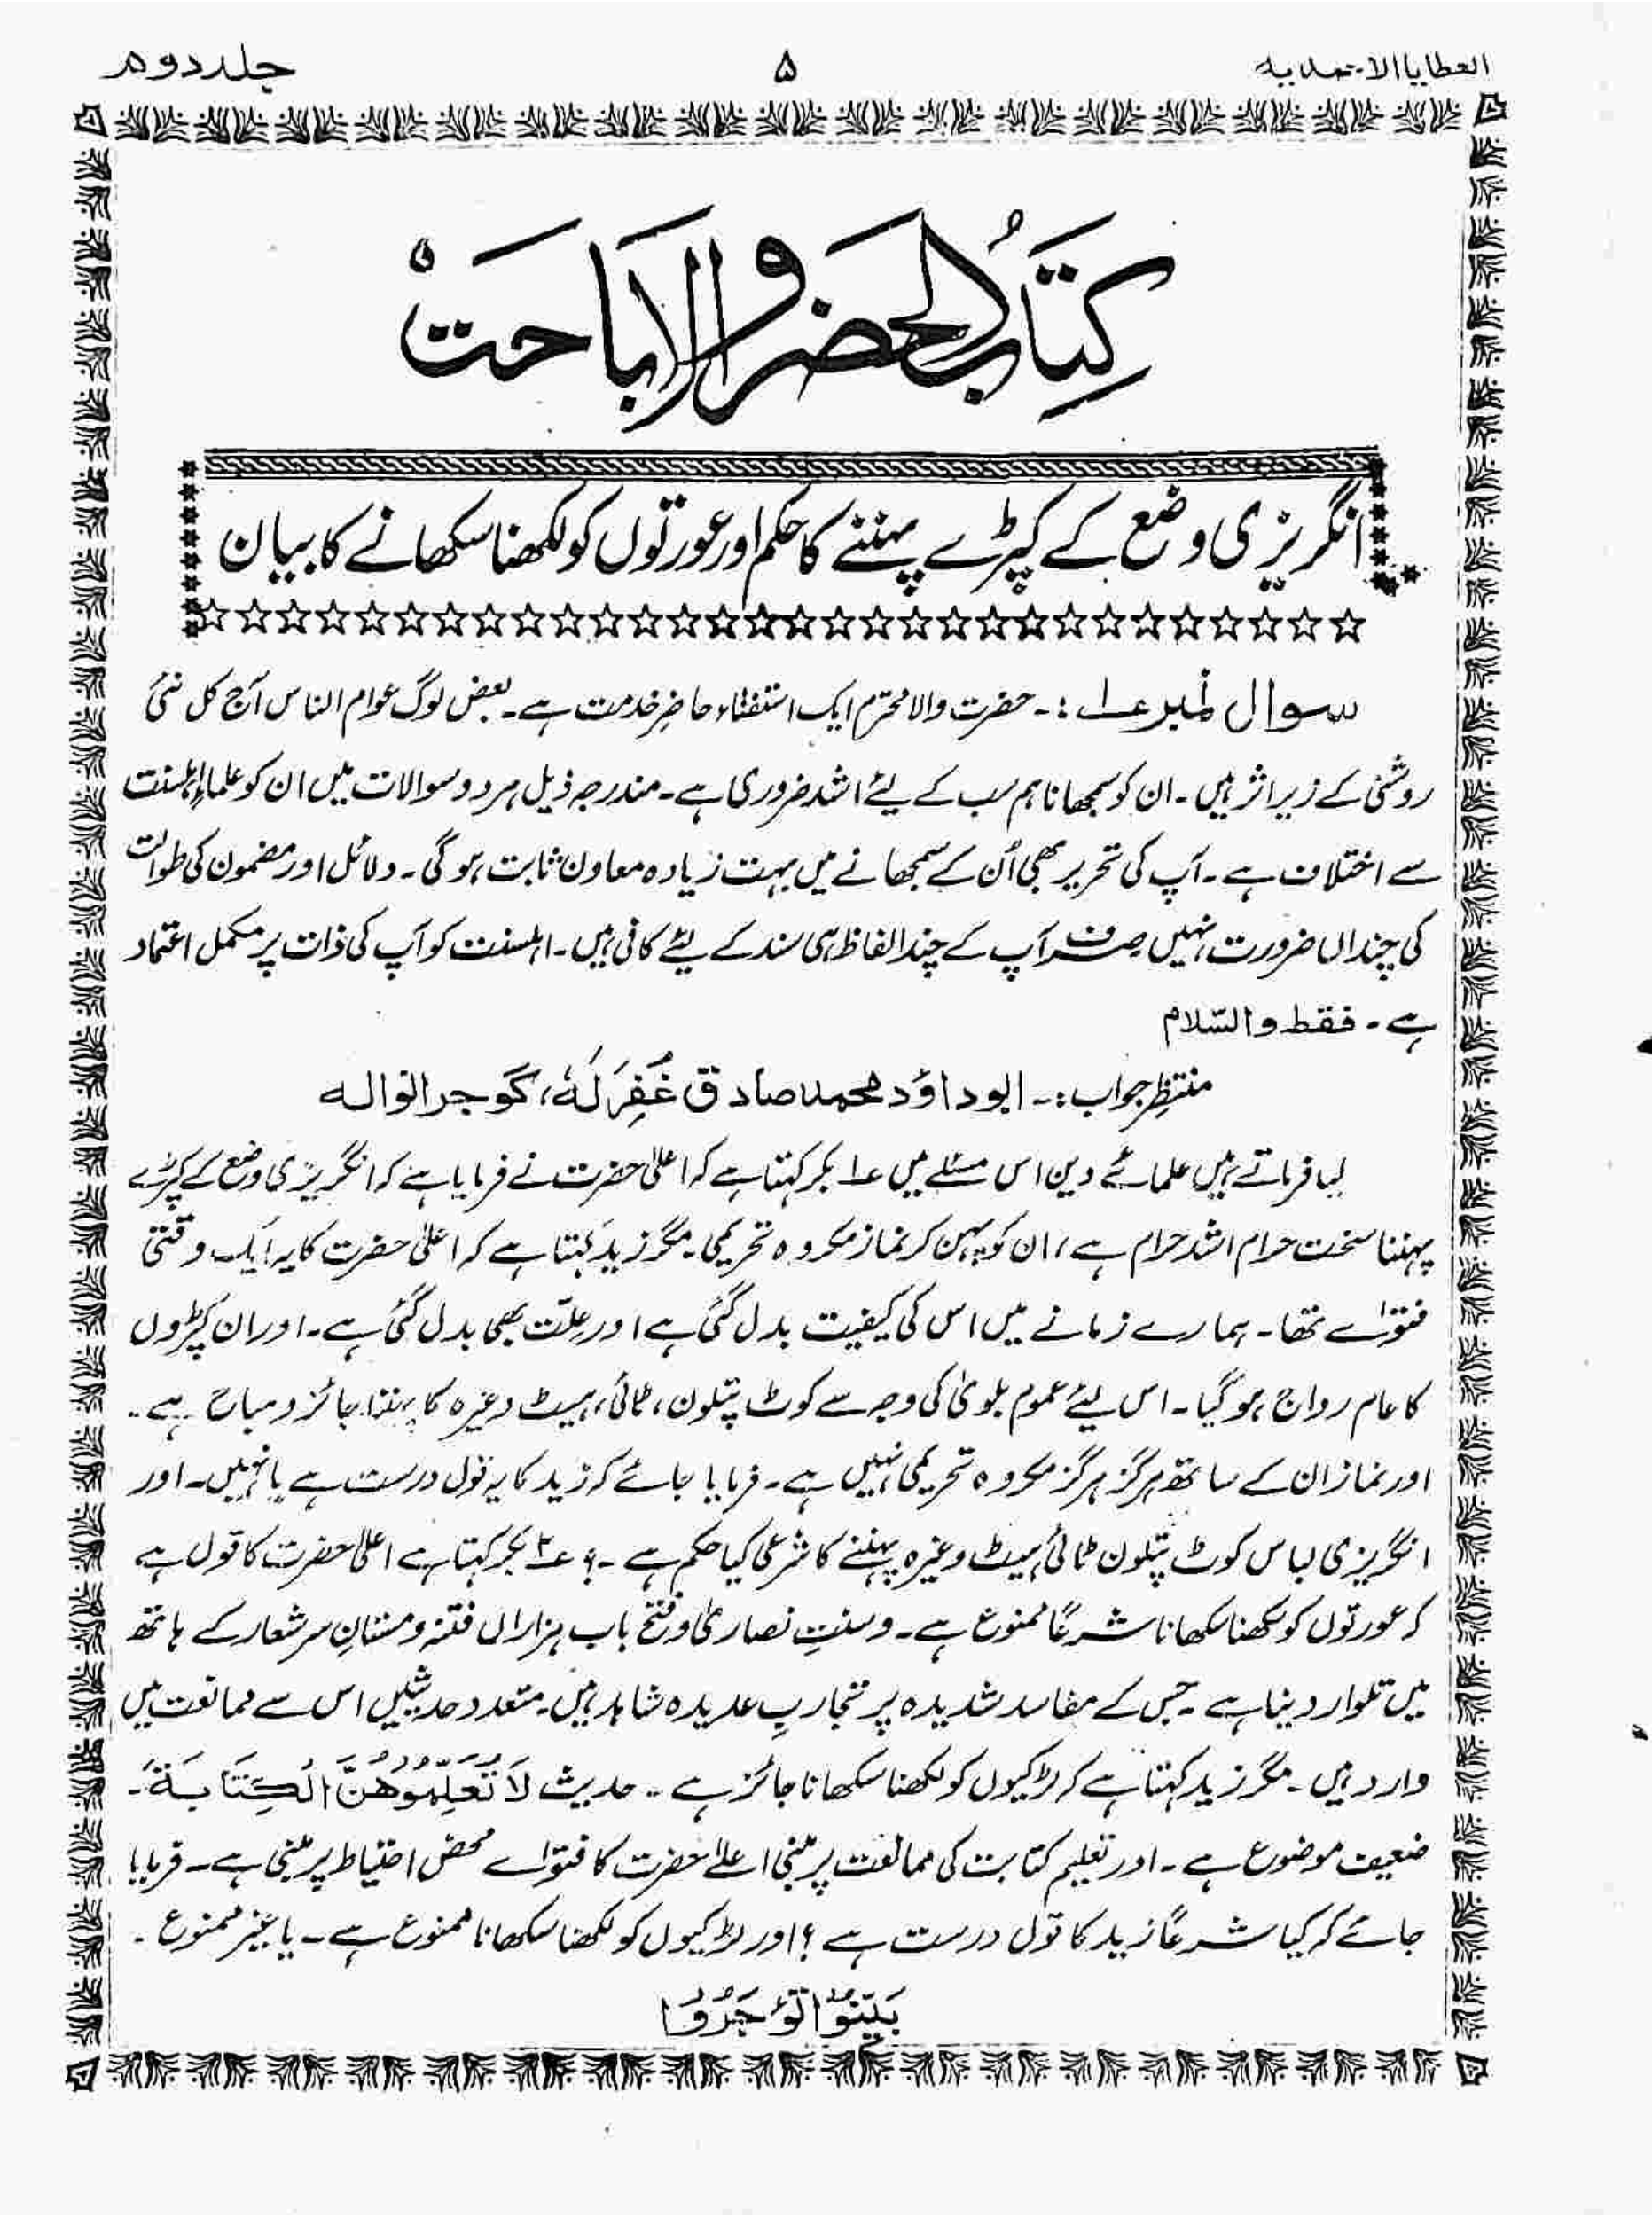 العطایا الاحمدیہ ۵ جلد دوم
کِتَابُ الحضر و الاباحت
انگریزی وضع کے کپڑے پہننے کا حکم اور عورتوں کو لکھنا سکھانے کا بیان
سوال نمبر ۱ :۔ حضرت والا محترم ایک استفتاء حاضرِ خدمت ہے۔ بعض لوگ عوام الناس آج کل نئی
روشنی کے زیر اثر ہیں۔ ان کو سمجھانا ہم سب کے لئے اشد ضروری ہے۔ مندرجہ ذیل ہر دو سوالات میں ان کو علماءِ اہلسنت
سے اختلاف ہے۔ آپ کی تحریر بھی اُن کے سمجھانے میں بہت زیادہ معاون ثابت ہو گی۔ دلائل اور مضمون کی طوالت
کی چنداں ضرورت نہیں صرف آپ کے چند الفاظ ہی سند کے لیئے کافی ہیں۔ اہلسنت کو آپ کی ذات پر مکمل اعتماد
ہے۔ فقط والسّلام
منتظرِ جواب :۔ ابوداؤد محمد صادق غُفِرَ لَہٗ، گوجرانوالہ
کیا فرماتے ہیں علمائے دین اس مسئلے میں ۱؎ بکر کہتا ہے کہ اعلیٰ حضرت نے فرمایا ہے کہ انگریزی وضع کے کپڑے
پہننا سخت حرام اشد حرام ہے، ان کو پہن کر نماز مکروہ تحریمی۔ مگر زید کہتا ہے کہ اعلیٰ حضرت کا یہ ایک وقتی
فتوٰے تھا۔ ہمارے زمانے میں اس کی کیفیت بدل گئی ہے اور علّت بھی بدل گئی ہے۔ اور ان کپڑوں
کا عام رواج ہو گیا۔ اس لیئے عموم بلویٰ کی وجہ سے کوٹ پتلون، ٹائی، ہیٹ وغیرہ کا پہننا جائز و مباح ہے۔
اور نماز ان کے ساتھ ہرگز ہرگز مکروہ تحریمی نہیں ہے۔ فرمایا جائے کہ زید کا یہ قول درست ہے یا نہیں۔ اور
انگریزی لباس کوٹ پتلون ٹائی ہیٹ وغیرہ پہننے کا شرعی کیا حکم ہے ۔؟ ۲؎ بکر کہتا ہے اعلیٰ حضرت کا قول ہے
کہ عورتوں کو لکھنا سکھانا شرعًا ممنوع ہے۔ و سنتِ نصاریٰ و فتح باب ہزاراں فتنہ و مستانِ سرشعار کے ہاتھ
میں تلوار دینا ہے۔ جس کے مفاسد شدیدہ پر تجاربِ عدیدہ شاہد ہیں۔ متعدد حدیثیں اس سے ممانعت میں
وارد ہیں۔ مگر زید کہتا ہے کہ لڑکیوں کو لکھنا سکھانا جائز ہے۔ حدیث لَا تُعَلِّمُوْھُنَّ الْکِتَابَۃَ۔
ضعیف موضوع ہے۔ اور تعلیم کتابت کی ممانعت پر مبنی اعلےٰ حضرت کا فتوٰے محض احتیاط پر مبنی ہے۔ فرمایا
جائے کہ کیا شرعًا زید کا قول درست ہے ؟ اور لڑکیوں کو لکھنا سکھانا ممنوع ہے۔ یا غیر ممنوع۔
بَیِّنُوْا تُوْجَرُوْا